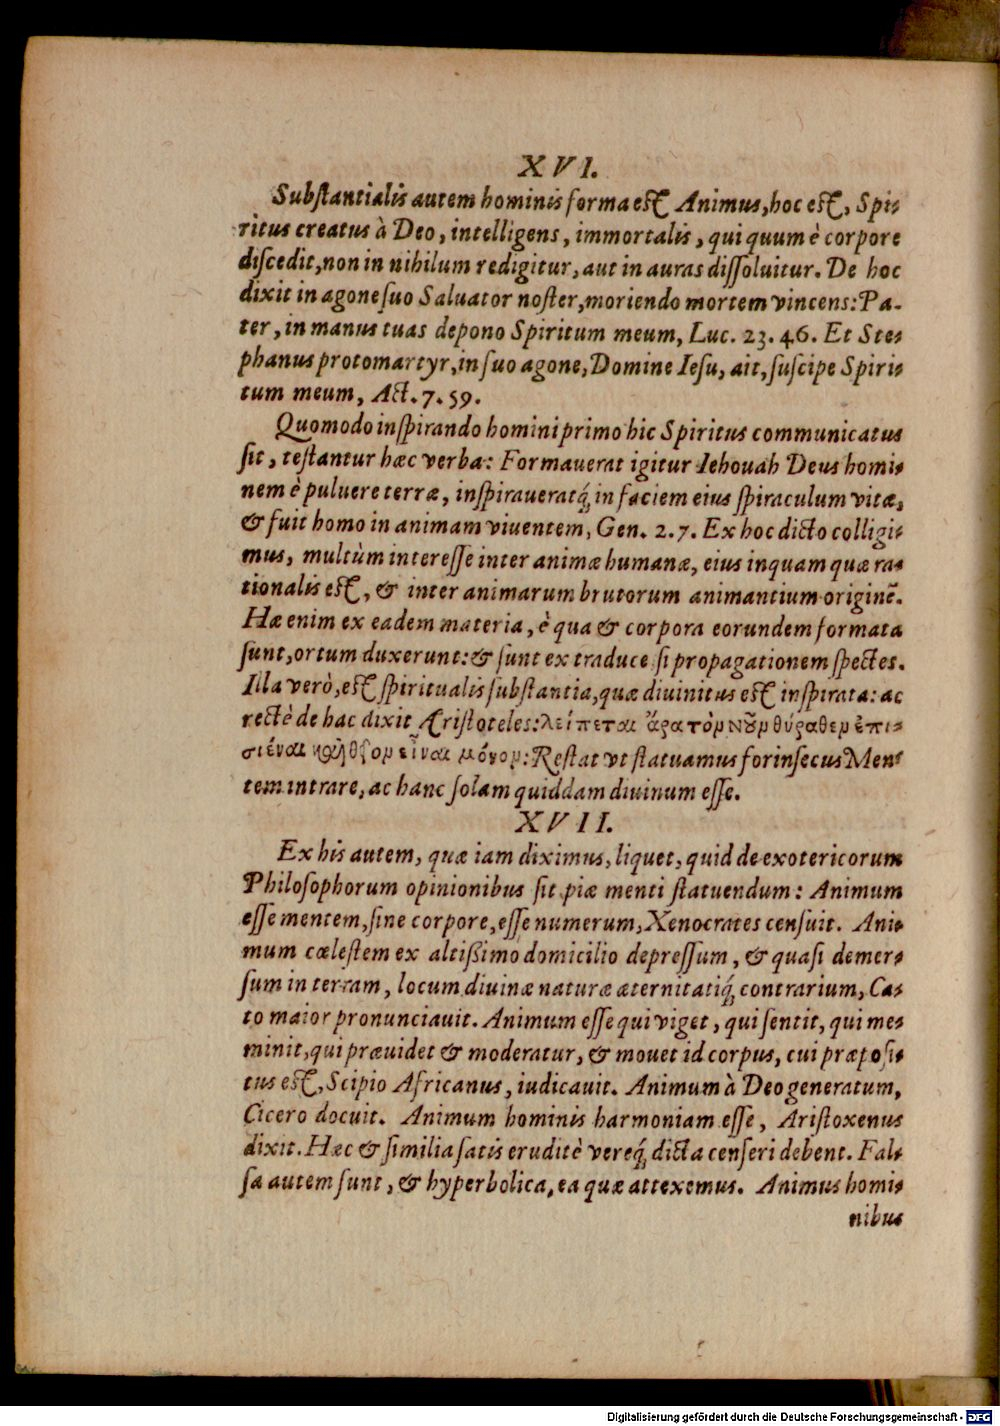 XVI.
Substantialis autem hominis forma est Animus, hoc est, Spi-
ritus creatus à Deo, intelligens, immortalis, qui quum è corpore
discedit, non in nihilum redigitur, aut in auras dissoluitur. De hoc
dixit in agone suo Saluator noster, moriendo mortem vincens: Pa-
ter, in manus tuas depono Spiritum meum, Luc. 23. 46. Et Ste-
phanus protomartyr, in suo agone, Domine Iesu, ait, suscipe Spiri-
tum meum, Act. 7. 59.
Quomodo inspirando homini primo hic Spiritus communicatus
sit, testantur hæc verba: Formauerat igitur Iehouah Deus homi-
nem è puluere terræ, inspiraueratq́; in faciem eius spiraculum vitæ,
& fuit homo in animam viuentem, Gen. 2. 7. Ex hoc dicto colligi-
mus, multùm interesse inter animæ humanæ, eius inquam quæ ra-
tionalis est, & inter animarum brutorum animantium originẽ.
Hæ enim ex eadem materia, è qua & corpora eorundem formata
sunt, ortum duxerunt: & sunt ex traduce si propagationem spectes.
Illa verò, est spiritualis substantia, quæ diuinitus est inspirata: ac
rectè de hac dixit Aristoteles: λείπεται ἄρα τὸν νοῦν θύραθεν ἐπι-
σιέναι καὶ θεῖον εἶναι μόνον: Restat vt statuamus forinsecus Men-
tem intrare, ac hanc solam quiddam diuinum esse.
XVII.
Ex his autem, quæ iam diximus, liquet, quid de exotericorum
Philosophorum opinionibus sit piæ menti statuendum: Animum
esse mentem, sine corpore, esse numerum, Xenocrates censuit. Ani-
mum cælestem ex altißimo domicilio depressum, & quasi demer-
sum in terram, locum diuinæ naturæ æternitatiq́; contrarium, Ca-
to maior pronunciauit. Animum esse qui viget, qui sentit, qui me-
minit, qui præuidet & moderatur, & mouet id corpus, cui præposi-
tus est, Scipio Africanus, iudicauit. Animum à Deo generatum,
Cicero docuit. Animum hominis harmoniam esse, Aristoxenus
dixit. Hæc & similia satis eruditè vereq́; dicta censeri debent. Fal-
sa autem sunt, & hyperbolica, ea quæ attexemus. Animus homi-
nibus
Digitalisierung gefördert durch die Deutsche Forschungsgemeinschaft - DFG